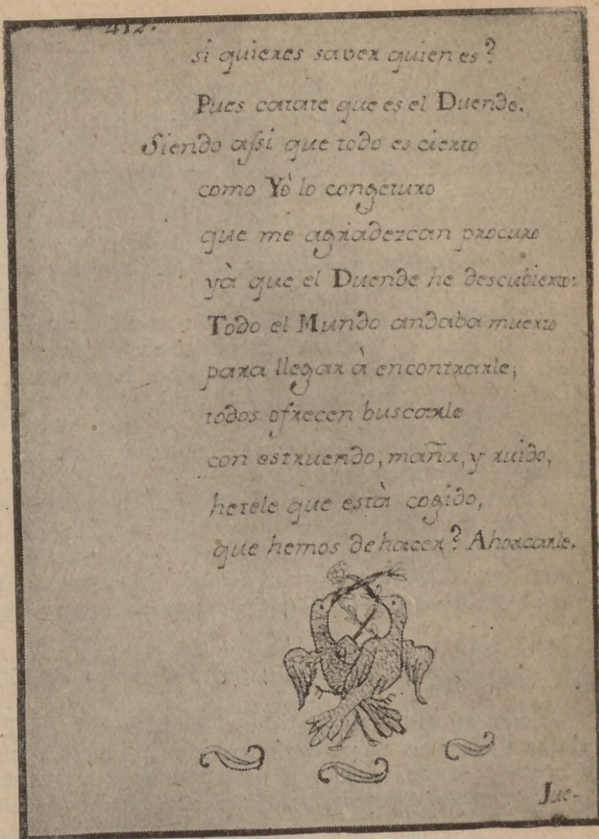 412.
si quieres saver quien es?
Pues catate que es el Duende.
Siendo assi que todo es cierto
como Yò lo congeturo
que me agriadezcan procuro
yà que el Duende he descubierto:
Todo el Mundo andaba muerto
para llegar à encontrarle,
todos ofrecen buscarle
con estruendo, maña, y ruido,
hetele que està cogido,
que hemos de hacer? Ahorcarle.